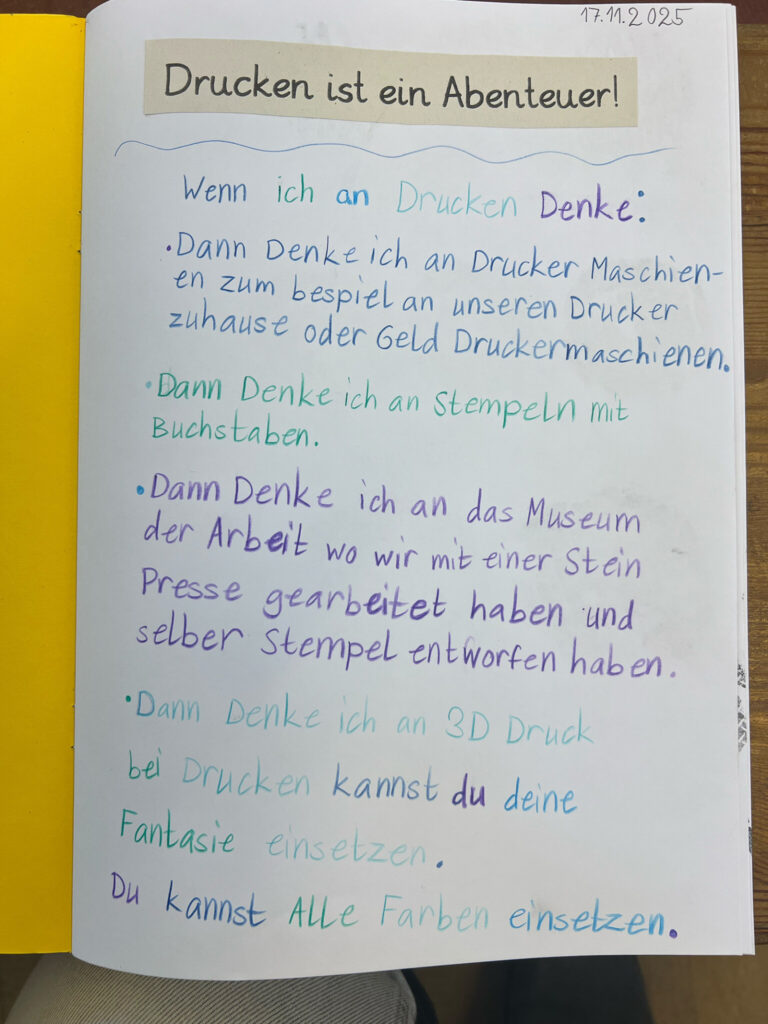 17.11.2025
Drucken ist ein Abenteuer!
Wenn ich an Drucken Denke:
•Dann Denke ich an Drucker Maschien-
en zum bespiel an unseren Drucker
zuhause oder Geld Druckermaschienen.
•Dann Denke ich an Stempeln mit
Buchstaben.
•Dann Denke ich an das Museum
der Arbeit wo wir mit einer Stein
Presse gearbeitet haben und
selber Stempel entworfen haben.
•Dann Denke ich an 3D Druck
bei Drucken kannst du deine
Fantasie einsetzen.
Du kannst Alle Farben einsetzen.